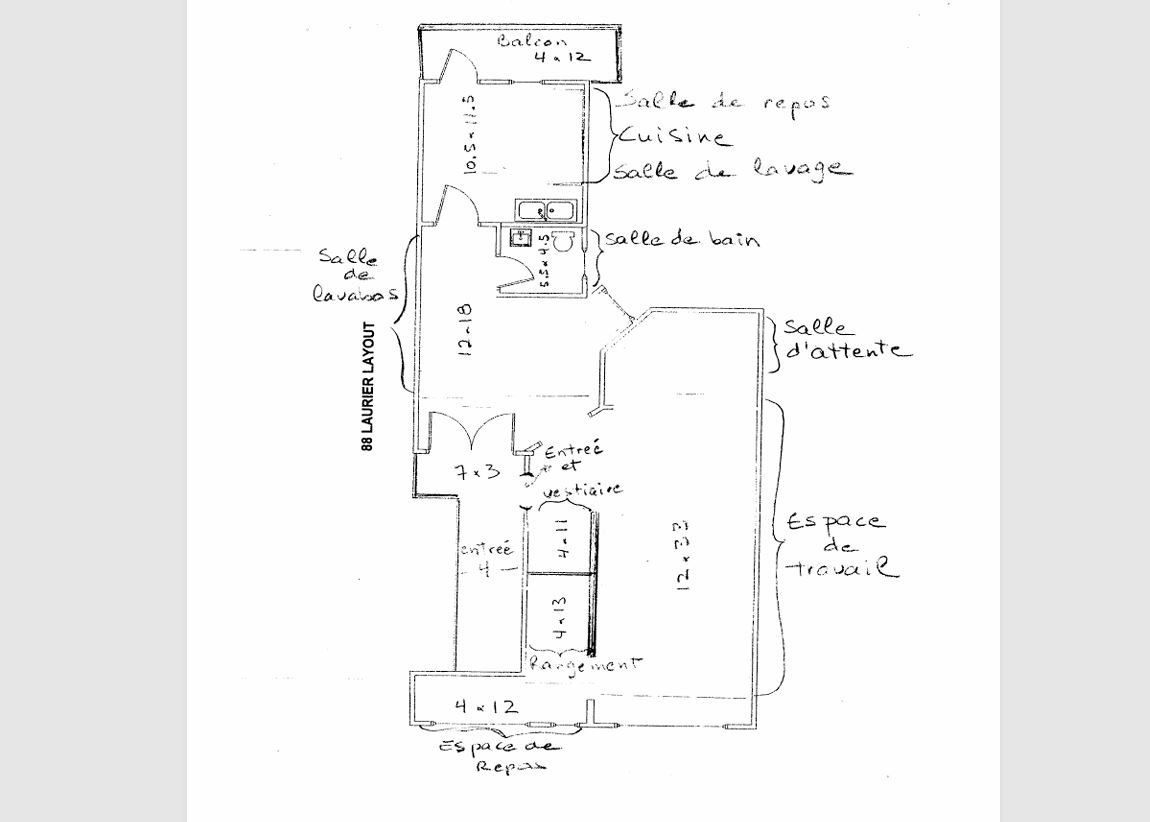 Balcon
4 x 12
10.5 x 11.5
Salle de repos
Cuisine
Salle de lavage
5.5 x 4.5
Salle de bain
Salle
de
lavabos
12 x 18
88 LAURIER LAYOUT
Salle
d'attente
7 x 3
Entreé
et
vestiaire
4 x 11
entreé
4
4 x 13
Rangement
12 x 33
Espace
de
travail
4 x 12
Espace de
Repos